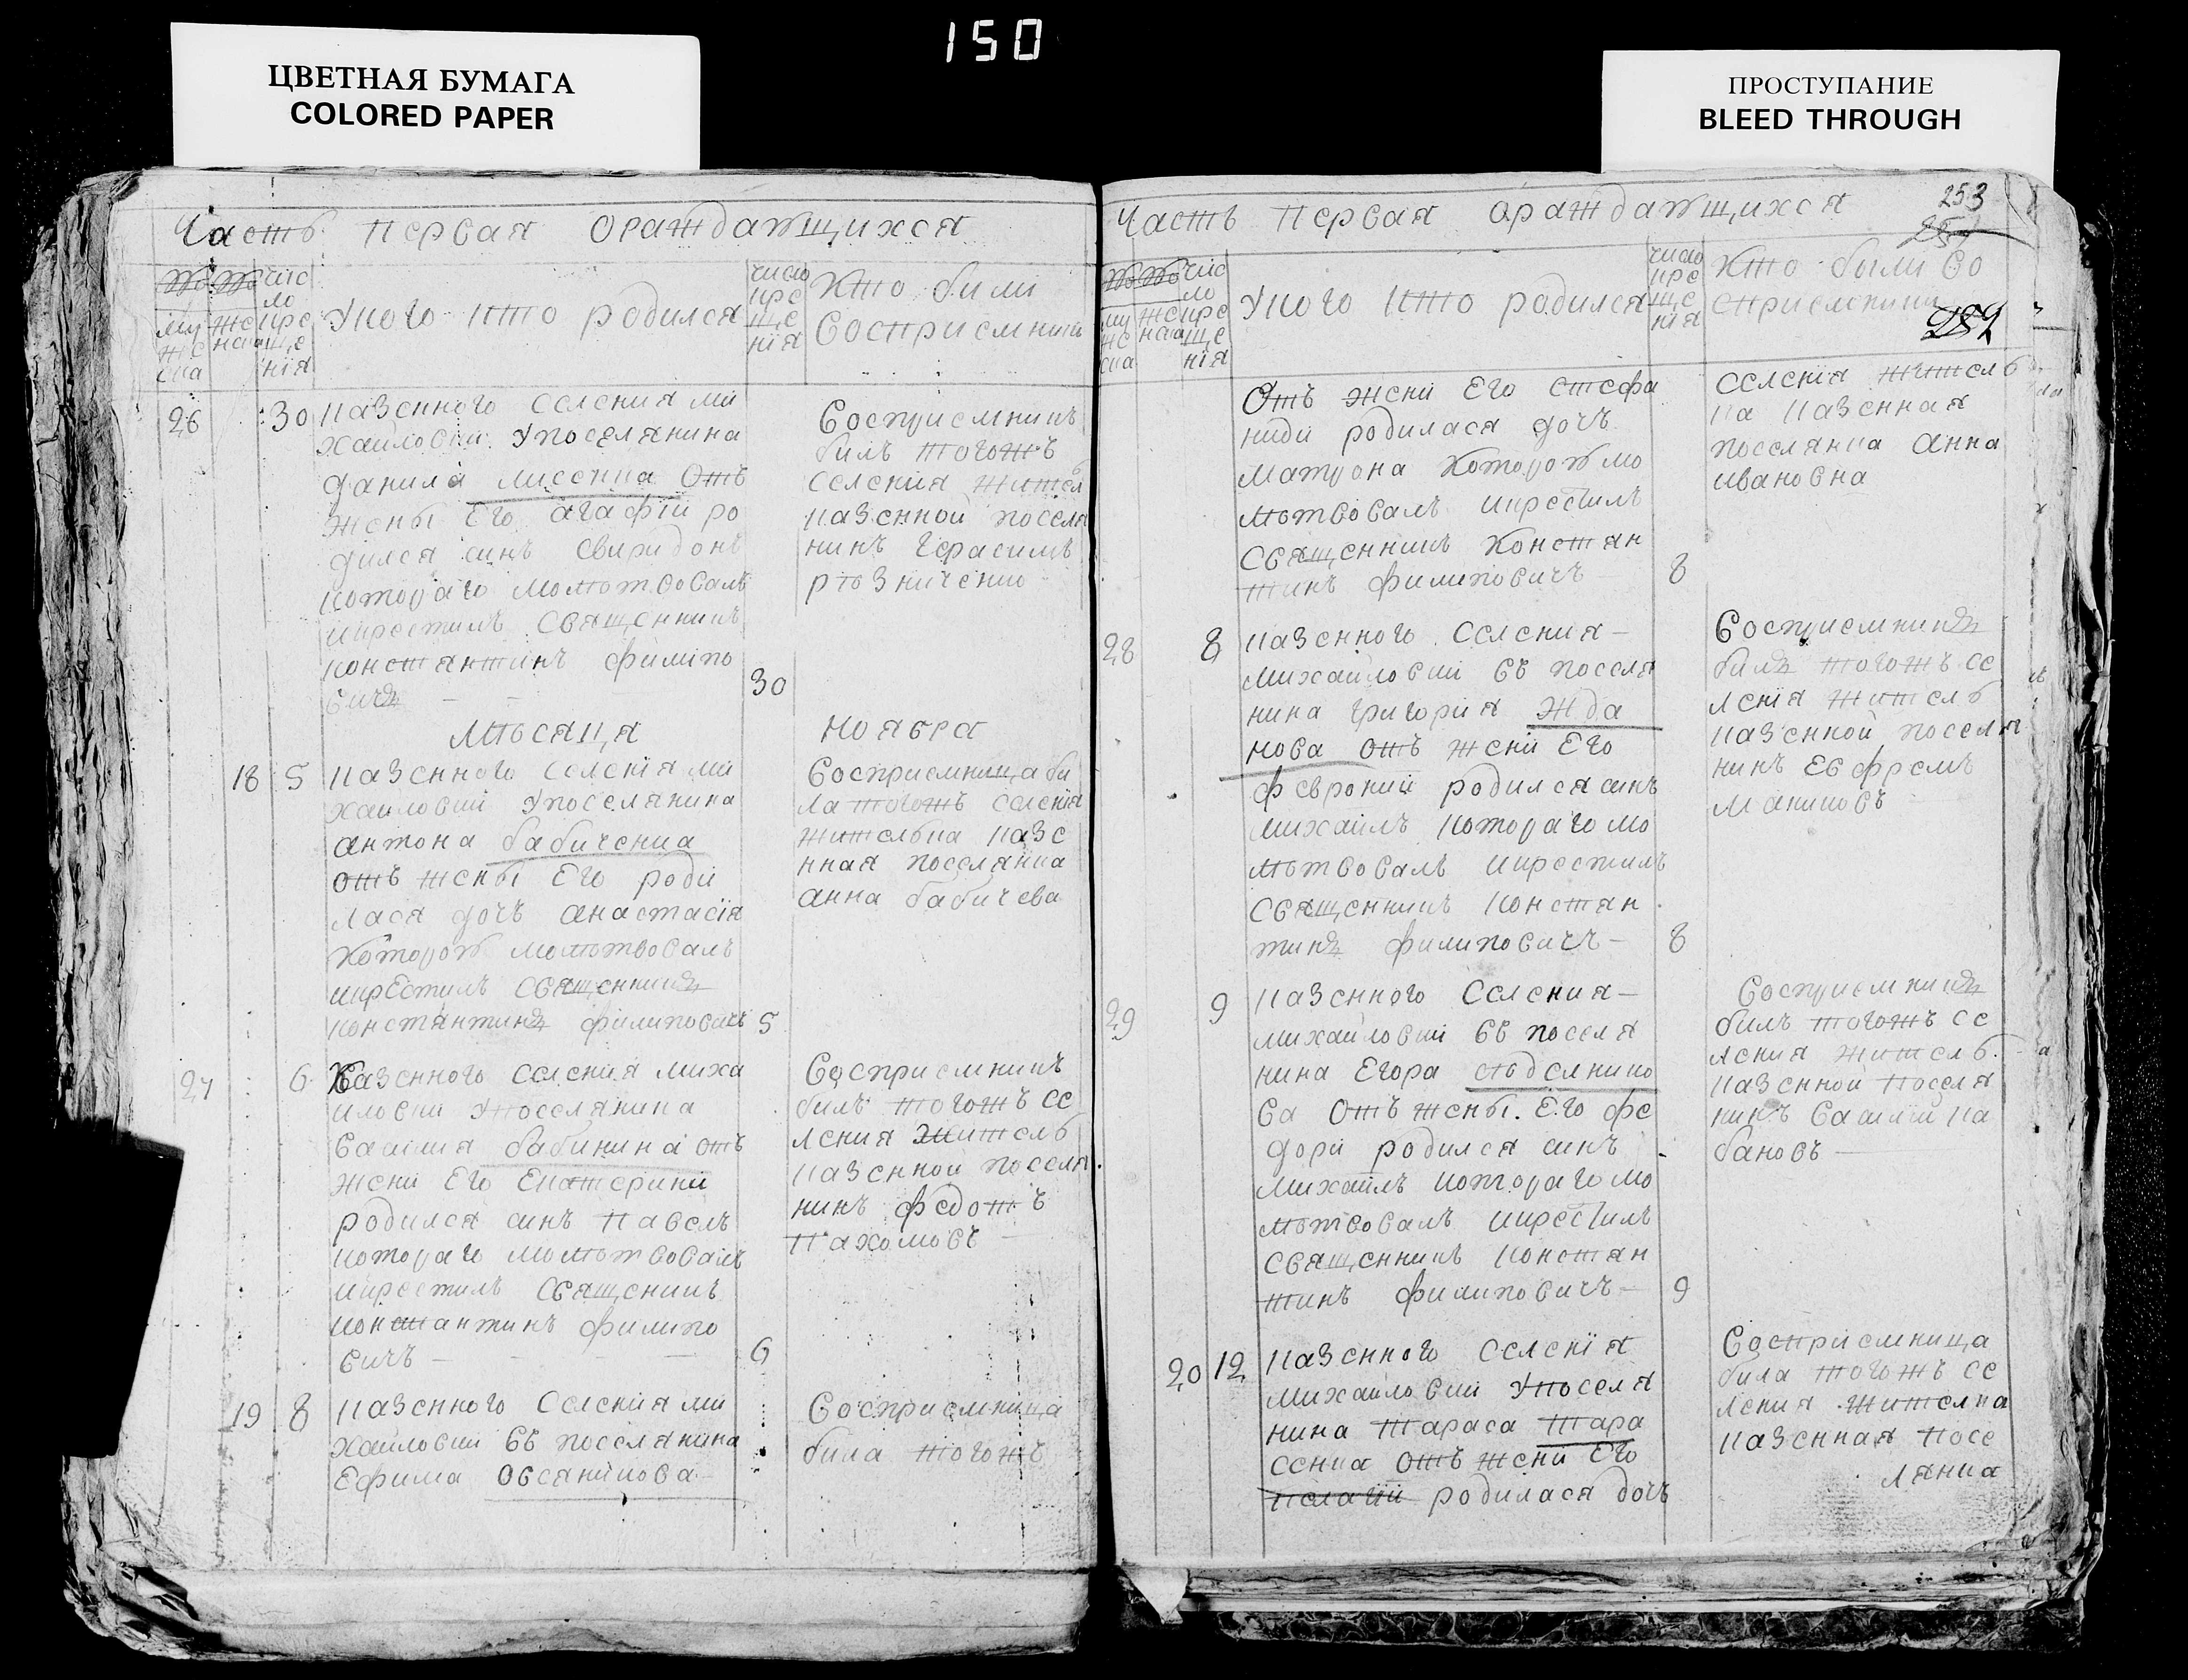 150
ЦВЕТНАЯ БУМАГА
COLORED PAPER
ПРОСТУПАНИЕ
BLEED THROUGH
Часть первая ораждающихся
число крещенія
Укого кто родился
число крещенія
Кто били
восприемники
26 30 казенного селения ми
хайловки Упоселянина
данила лисенка Отъ
жены Его агафіи ро
дился синъ Свиридонъ
котораго молитвовалъ
икрестилъ Священникъ
константинъ филипо
вичъ 30
Восприемникъ
билъ тогожъ
селения житель
казенной поселя
нинъ Герасимъ
Мѣсяца Ноября
18 5 казенного селенія ми
хайловки Упоселянина
антона бабиченка
отъ жены Его роди
лася дочъ анастасія
Которой молитвовалъ
икрЕстилъ Священникъ
константинъ филиповичъ 5
Восприемница би
ла тогожъ селенія
жителька казе
нная поселянка
анна бабичева
27 6 Казенного селения миха
йловки Упоселянина
Василия бабинина отъ
жени Его Екатерини
родился синъ Павелъ
котораго молитвовалъ
икрестилъ Священикъ
константинъ филипо
вичъ 6
Восприемникъ
билъ тогожъ се
ления житель
казенной поселя
нинъ федотъ
Пахомовъ
19 8 казенного Селения ми
хайловки Въ поселянина
Ефима Овсяникова
Восприемница
била тогожъ
Часть первая ораждающихся
253
число крещенія
Укого кто родился
число крещенія
Кто были во
сприемники
Отъ жени Его стефа
ниди родилася дочъ
Матрона Которой мо
литвовалъ икрестилъ
Священникъ Констан
тинъ филиповичъ 8
селенія житель
ка казенная
поселянка анна
ивановна
28 8 казенного Селения
михайловки Въ поселя
нина григория Жда
нова отъ жени Его
февронии родился синъ
михаилъ котораго мо
литвовалъ икрестилъ
Священникъ констан
тинъ филиповичъ 8
Восприемникъ
билъ тогожъ се
ленія житель
казенной поселя
нинъ Ефремъ
Маниновъ
29 9 казенного Селения
михайловки Въ поселя
нина Егора
ва Отъ жены Его фе
дори родился синъ
михаилъ котораго мо
литвовалъ икрестилъ
Священникъ констан
тинъ филиповичъ 9
Восприемникъ
билъ тогожъ се
ления житель
казенной поселя
нинъ Василій ка
бановъ
20 12 казенного селенія
михайловки Упоселя
нина тараса тара
сенка отъ жени Его
пелагіи родилася дочъ
Восприемница
била тогожъ се
ления жителка
казенная посе
лянка